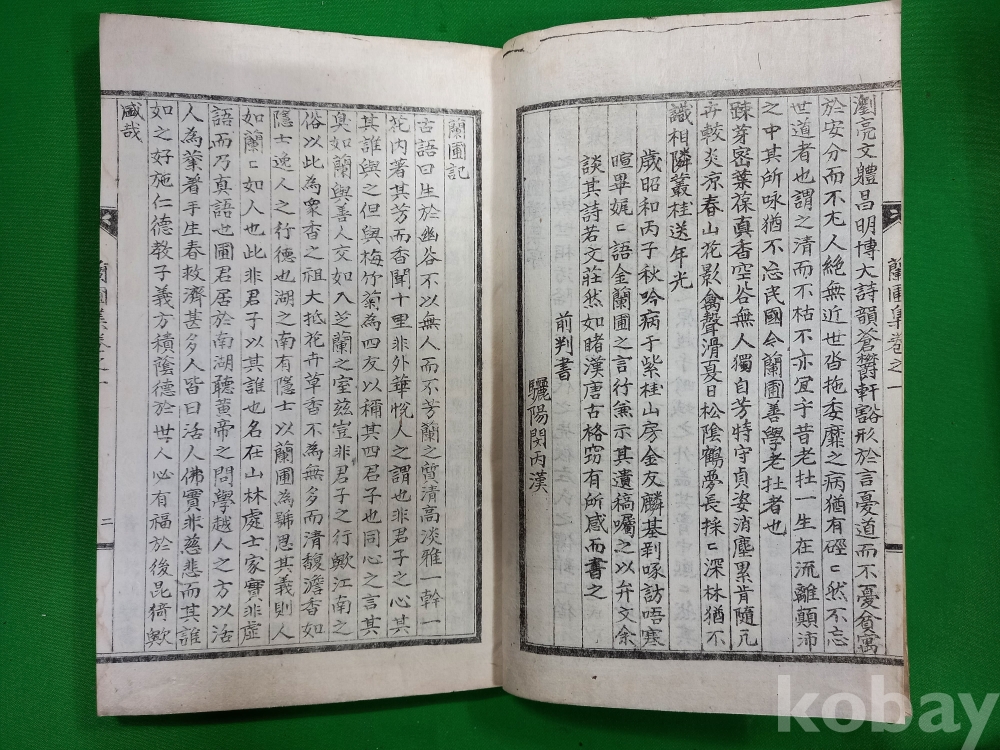 瀏亮文體昌明博大詩韻蒼欝軒豁形於言憂道而不憂貧寓
於安分而不尤人絶無近世沓拖委靡之病猶有硜〻然不忘
世道者也謂之清而不枯不亦宜乎昔老杜一生在流離顛沛
之中其所咏猶不忘民國今蘭圃善學老杜者也
踈芽密葉葆眞香空谷無人獨自芳特守貞姿消塵累肯隨凡
卉較炎凉春山花影禽聲滑夏日松陰鶴夢長採〻深林猶不
識相隣叢桂送年光
歲昭和丙子秋吟病于紫桂山房金友麟基剥啄訪唔寒
暄畢娓〻語金蘭圃之言行兼示其遺稿囑之以弁文余
談其詩若文莊然如睹漢唐古格窃有所感而書之
前判書
驪陽閔丙漢
蘭圃集卷之一
蘭圃記
古語曰生於幽谷不以無人而不芳蘭之質清高淡雅一幹一
花内著其芳而香聞十里非外華悅人之謂也非君子之心其
其誰與之但與梅竹菊為四友以稱其四君子也同心之言其
臭如蘭與善人交如入芝蘭之室茲豈非君子之行歟江南之
俗以此為衆香之祖大抵花卉草香不為無多而清馥澹香如
隱士逸人之行德也湖之南有隱士以蘭圃為號思其義則人
如蘭〻如人也此非君子以其誰也名在山林處士家實非虛
語而乃真語也圃君居於南湖聽黃帝之問學越人之方以活
人為業着手生春救濟甚多人皆曰活人佛實非慈悲而其誰
如之好施仁德教子義方積蔭德於世人必有福於後昆猗歟
盛哉
蘭圃集卷之一
二
kobay